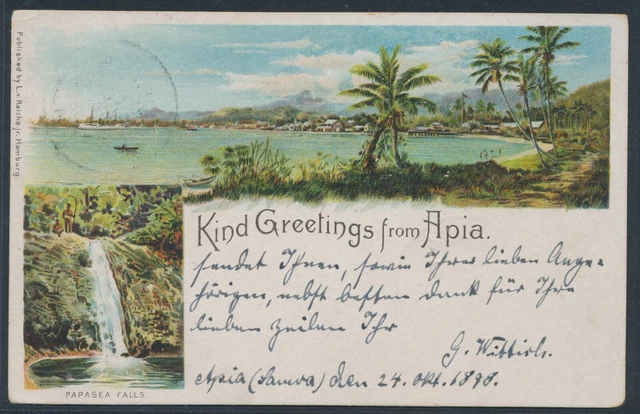 Published by L. v. Reiche jr. Hamburg.
Kind Greetings from Apia.
sendet Ihnen, sowie Ihren lieben Ange-
hörigen, nebst besten dank für Ihre
lieben Zeilen Ihr
G. Wittich.
Apia (Samoa) den 24. Okt. 1898.
PAPASEA FALLS.